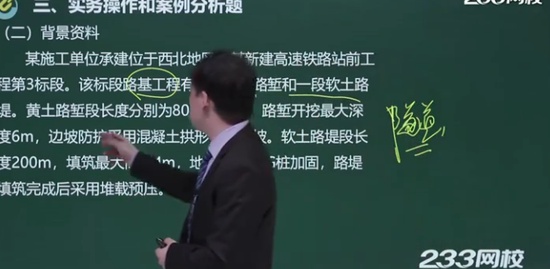 三、实务操作和案例分析题
233网校
（二）背景资料
某施工单位承建位于西北地 新建高速铁路站前工
程第3标段。该标段路基工程有 路堑和一段软土路
堤。黄土路堑段长度分别为80 路堑开挖最大深
度6m，边坡防护采用混凝土拱形 软土路堤段长
度200m，填筑最大 4m，地 桩加固，路堤
填筑完成后采用堆载预压。
隧道
233网校